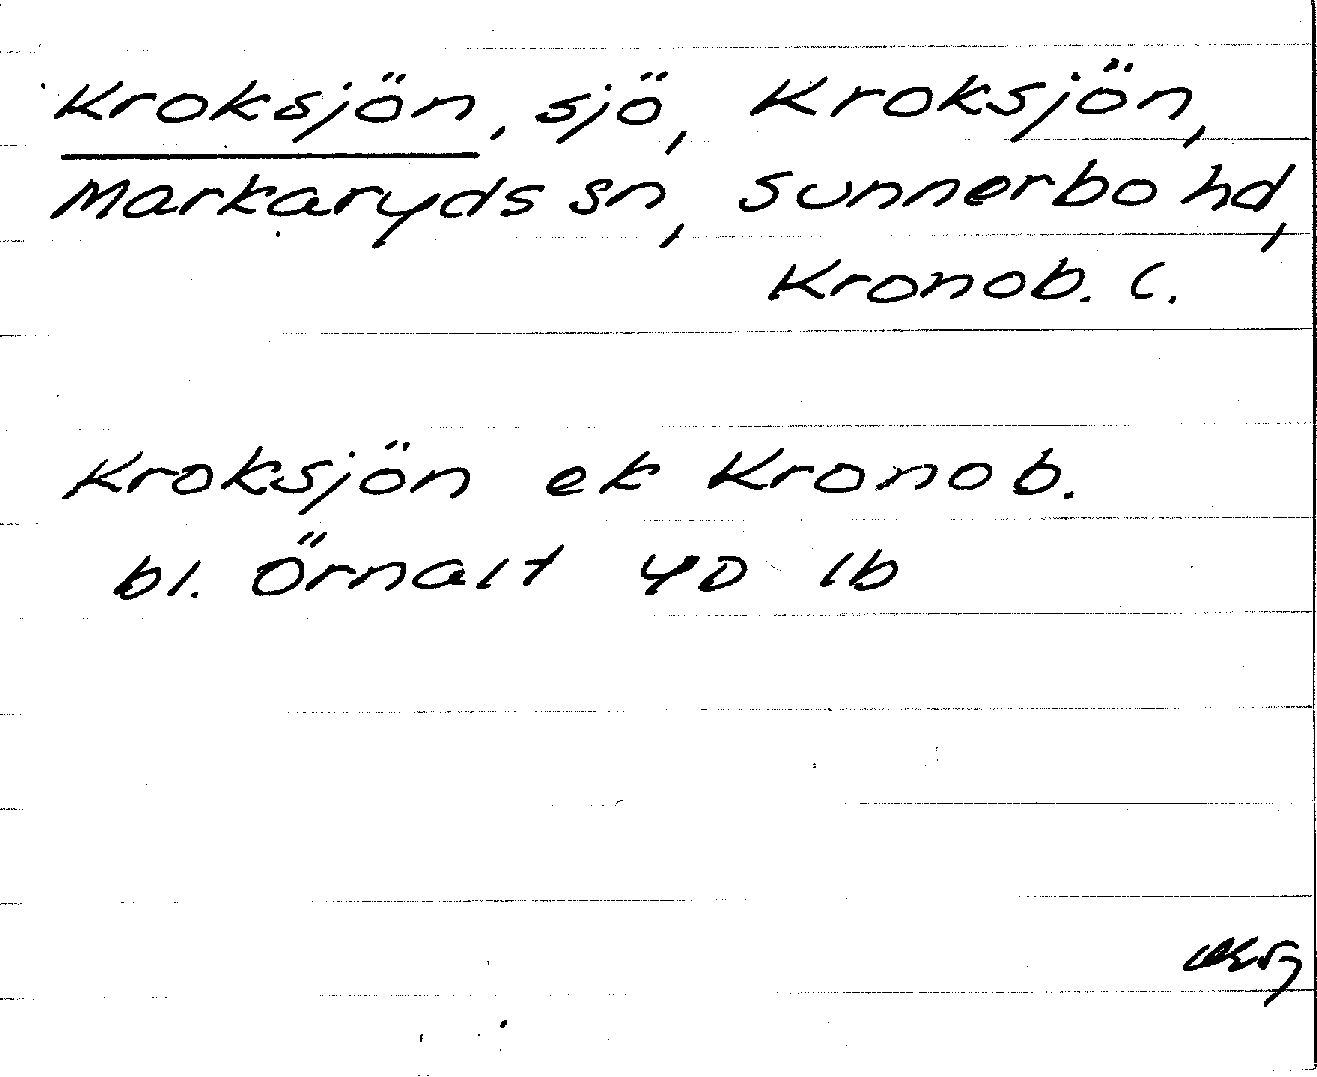 Kroksjön, sjö, Kroksjön,
Markaryds sn, Sunnerbo hd,
Kronob. l.
Kroksjön ek Kronob.
bl. Örnalt 4D 1b